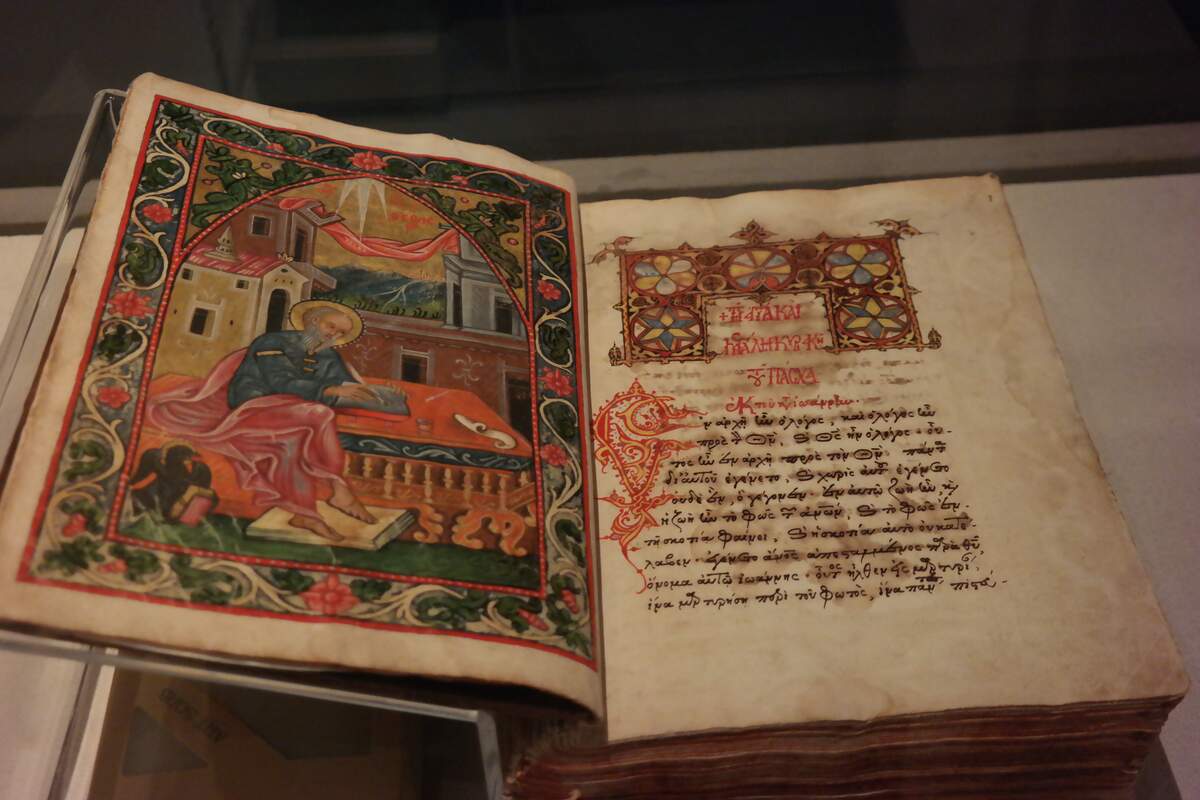 +ΤΗ ΑΓΙΑ ΚΑΙ
ΜΕΓΑΛΗ ΚΥΡΙΑΚΗ
ΠΑΣΧΑ
Ἐκ τοῦ κατὰ ἰωάννην
ἐν ἀρχῇ ἦν ὁ λόγος, καὶ ὁ λόγος ἦν
πρὸς τὸν θν, καὶ θς ἦν ὁ λόγος. οὗ-
τος ἦν ἐν ἀρχῇ πρὸς τὸν θν. πάντα
δι' αὐτοῦ ἐγένετο, καὶ χωρὶς αὐτοῦ ἐγένετο
οὐδὲ ἓν, ὃ γέγονεν. ἐν αὐτῷ ζωὴ ἦν, καὶ
ἡ ζωὴ ἦν τὸ φῶς τῶν ἀνων, καὶ τὸ φῶς ἐν
τῇ σκοτίᾳ φαίνει, καὶ ἡ σκοτία αὐτὸ οὐ κατέ-
λαβεν. ἐγένετο ἄνος ἀπεσταλμένος παρὰ θυ,
ὄνομα αὐτῷ ἰωάννης. οὗτος ἦλθεν εἰς μαρτυρί
ἵνα μαρτυρήσῃ περὶ τοῦ φωτὸς, ἵνα πάντες πιστεύ